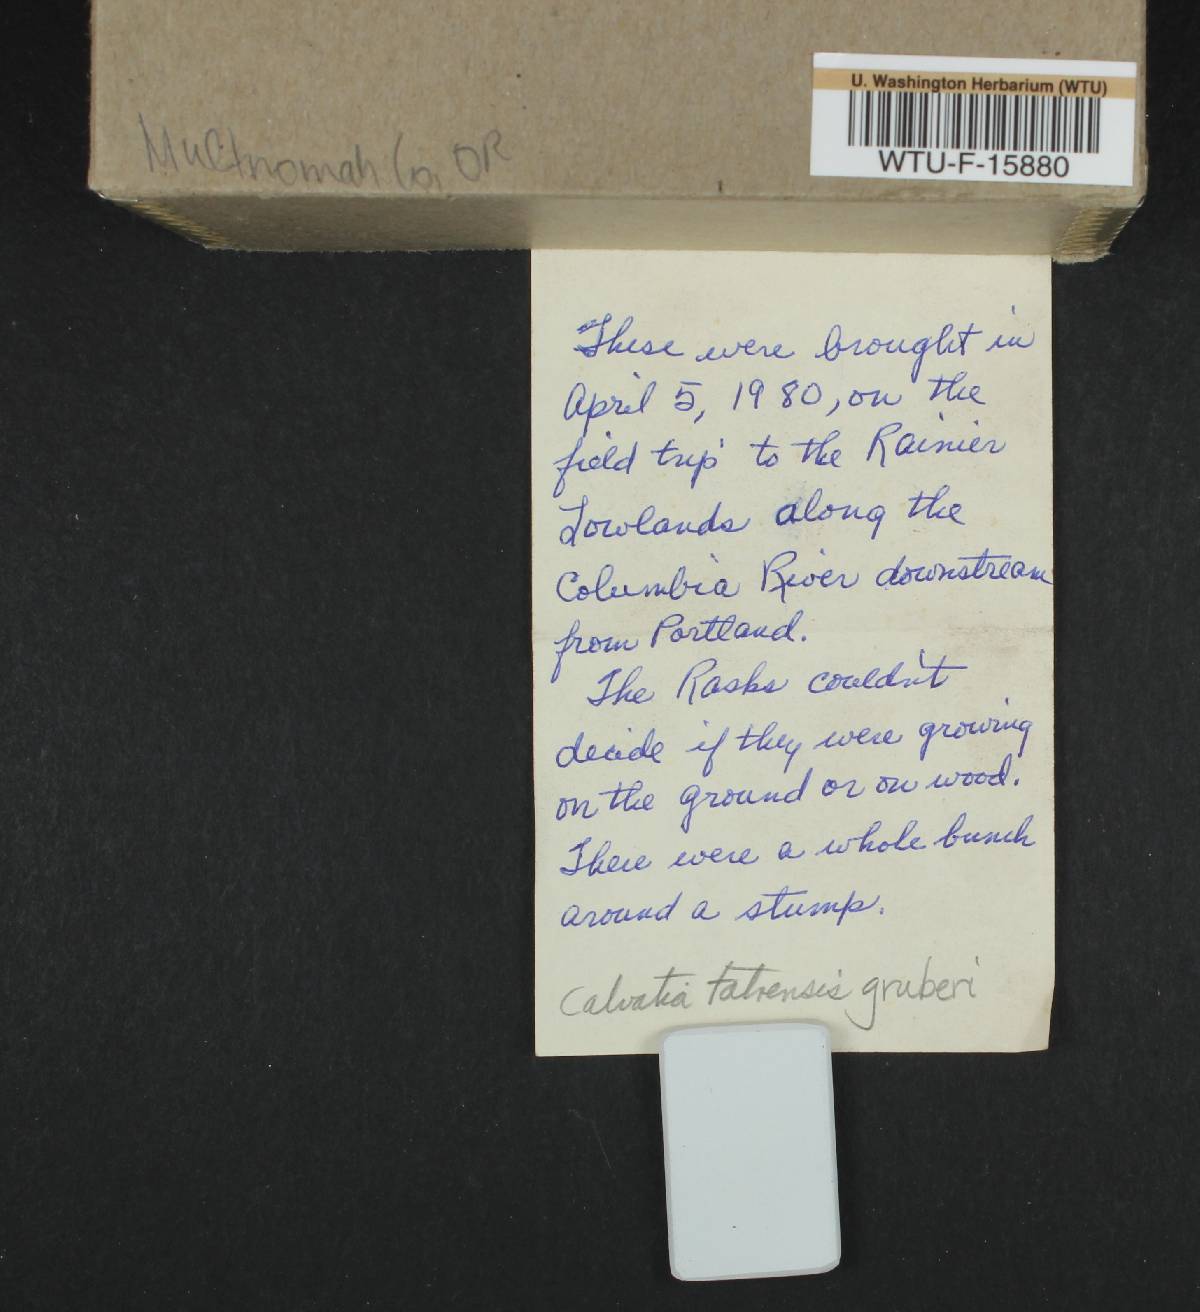 U. Washington Herbarium (WTU)
WTU-F-15880
Multnomah Co, OR
These were brought in
April 5, 1980, on the
field trip to the Rainier
Lowlands along the
Columbia River downstream
from Portland.
The Rasks couldn't
decide if they were growing
on the ground or on wood.
There were a whole bunch
around a stump.
Calvatia tatrensis gruberi